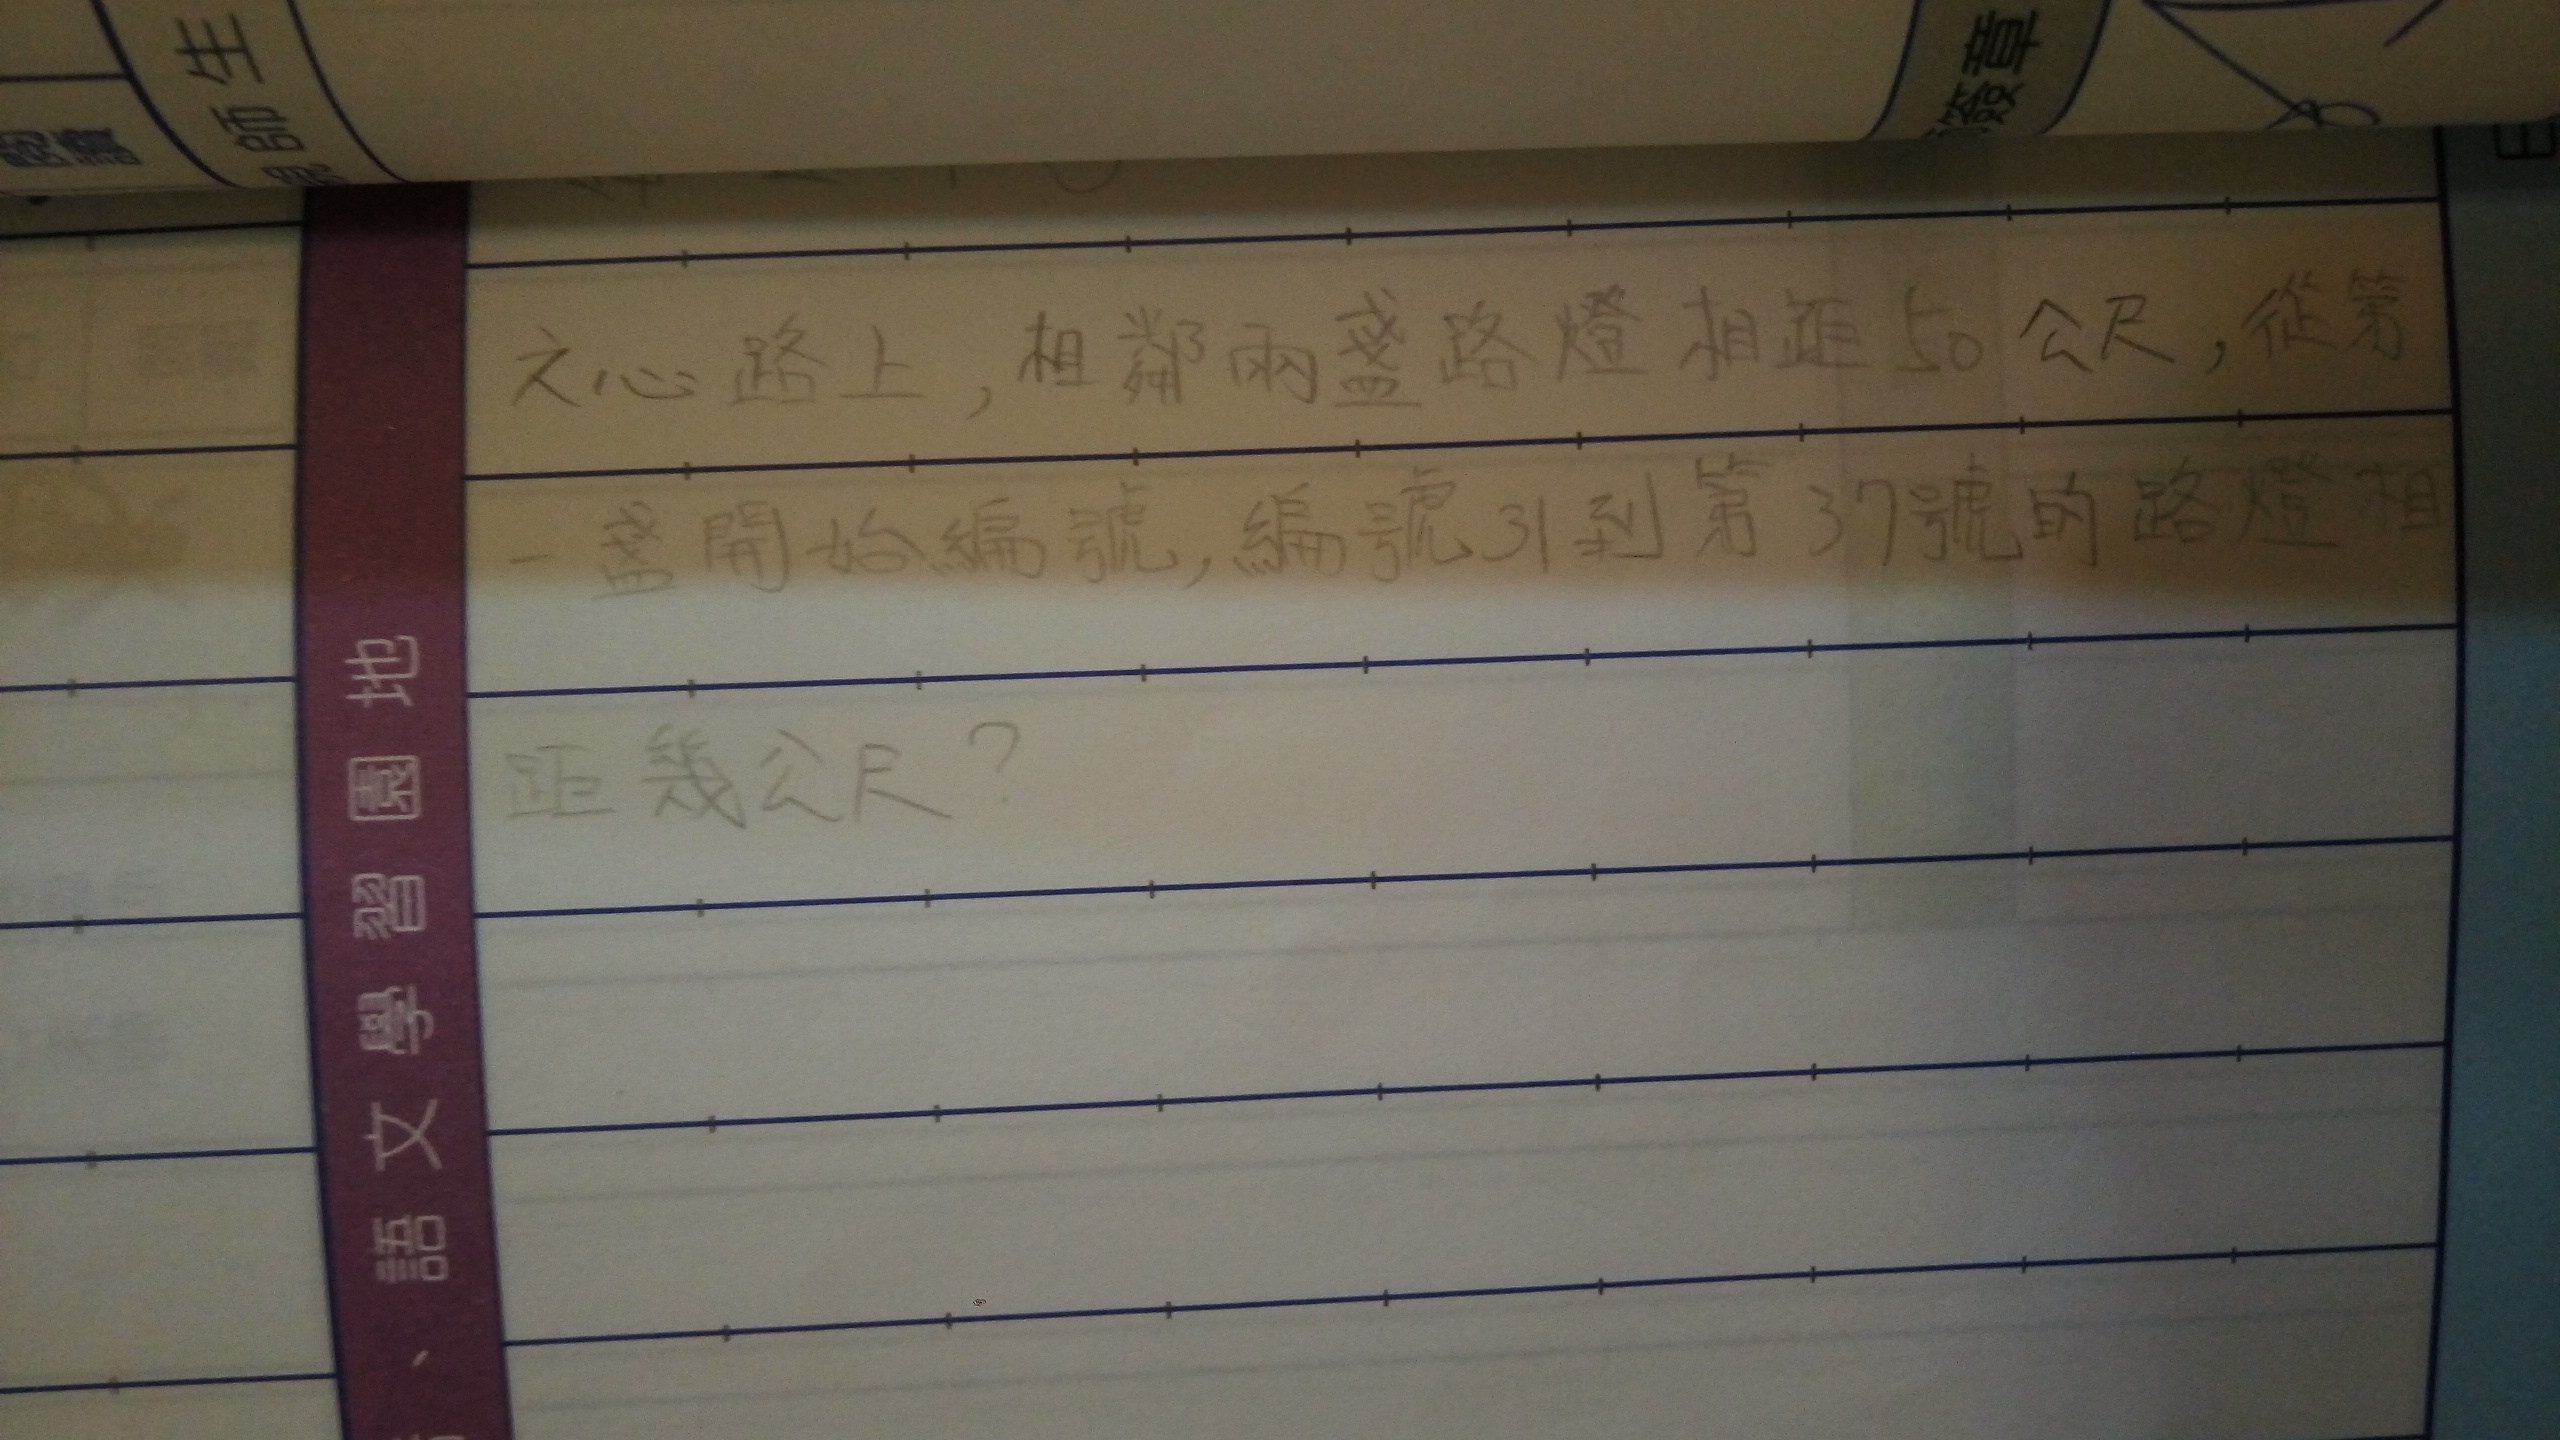 師生
簽章
閱讀
文心路上，相鄰兩盞路燈相距50公尺，從第
一盞開始編號，編號31到第37號的路燈相
距幾公尺？
語文學習園地